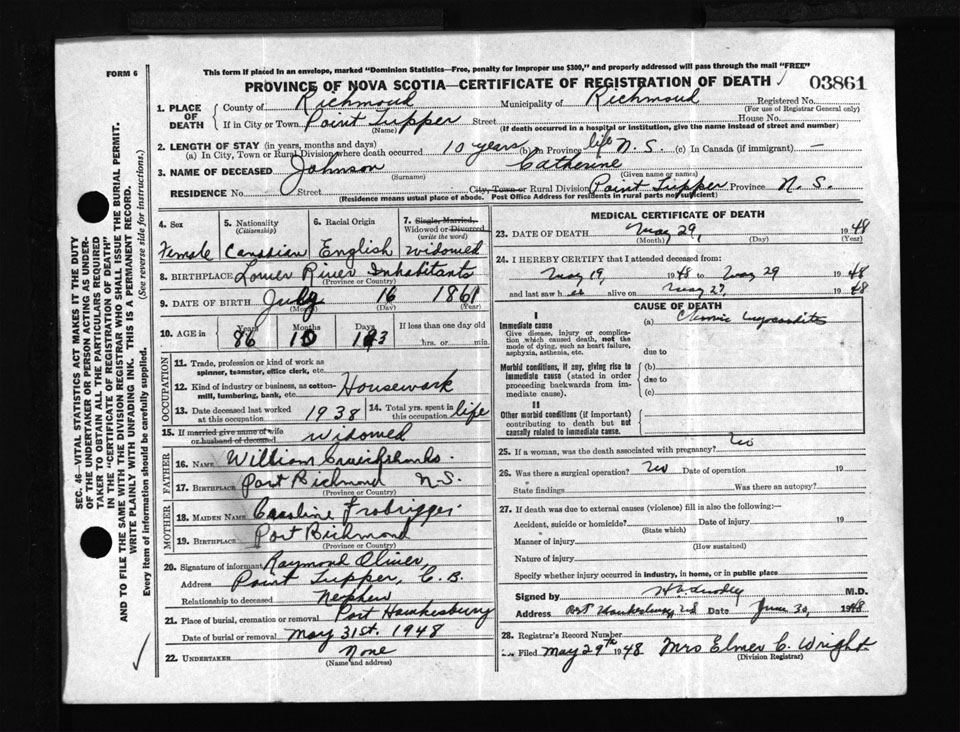 FORM 6
This form if placed in an envelope, marked "Dominion Statistics—Free, penalty for improper use $300," and properly addressed will pass through the mail "FREE"
PROVINCE OF NOVA SCOTIA—CERTIFICATE OF REGISTRATION OF DEATH 03861
1. PLACE OF DEATH County of Richmond Municipality of Richmond Registered No.
(For use of Registrar General only)
If in City or Town Point Tupper Street House No.
(Name) (If death occurred in a hospital or institution, give the name instead of street and number)
2. LENGTH OF STAY (in years, months and days)
(a) In City, Town or Rural Division where death occurred 10 years (b) in Province life N. S. (c) In Canada (if immigrant) —
3. NAME OF DECEASED Johnson Catherine
(Surname) (Given name or names)
RESIDENCE No. Street City, Town or Rural Division Point Tupper Province N. S.
(Residence means usual place of abode. Post Office Address for residents in rural parts not sufficient)
SEC. 46—VITAL STATISTICS ACT MAKES IT THE DUTY
OF THE UNDERTAKER OR PERSON ACTING AS UNDER-
TAKER TO OBTAIN ALL THE PARTICULARS REQUIRED
IN THE "CERTIFICATE OF REGISTRATION OF DEATH"
AND TO FILE THE SAME WITH THE DIVISION REGISTRAR WHO SHALL ISSUE THE BURIAL PERMIT.
WRITE PLAINLY WITH UNFADING INK. THIS IS A PERMANENT RECORD.
Every item of information should be carefully supplied. (See reverse side for instructions.)
4. Sex
Female
5. Nationality
(Citizenship)
Canadian
6. Racial Origin
English
7. Single, Married,
Widowed or Divorced
(write the word)
Widowed
8. BIRTHPLACE Lower River Inhabitants
(Province or Country)
9. DATE OF BIRTH July 16 1861
(Month) (Day) (Year)
10. AGE in Years Months Days If less than one day old
86 10 13 hrs. or min.
OCCUPATION
11. Trade, profession or kind of work as
spinner, teamster, office clerk, etc.
12. Kind of industry or business, as cotton-
mill, lumbering, bank, etc. Housework
13. Date deceased last worked
at this occupation 1938
14. Total yrs. spent in
this occupation life
15. If married give name of wife
or husband of deceased Widowed
FATHER
16. NAME William Cruickshanks
17. BIRTHPLACE Port Richmond N.S.
(Province or Country)
MOTHER
18. MAIDEN NAME Caroline
19. BIRTHPLACE Port Richmond
(Province or Country)
20. Signature of informant Raymond Oliver
Address Point Tupper, C. B.
Relationship to deceased Nephew
21. Place of burial, cremation or removal Port Hawkesbury
Date of burial or removal May 31st. 1948
22. UNDERTAKER None
(Name and address)
MEDICAL CERTIFICATE OF DEATH
23. DATE OF DEATH May 29, 1948
(Month) (Day) (Year)
24. I HEREBY CERTIFY that I attended deceased from:
May 19, 1948 to May 29 1948
and last saw her alive on May 27 1948
CAUSE OF DEATH
I
Immediate cause (a) Chronic Myocarditis
Give disease, injury or complica-
tion which caused death, not the
mode of dying, such as heart failure,
asphyxia, asthenia, etc. due to
Morbid conditions, if any, giving rise to (b)
immediate cause (stated in order due to
proceeding backwards from im-
mediate cause). (c)
II
Other morbid conditions (if important)
contributing to death but not
causally related to immediate cause.
25. If a woman, was the death associated with pregnancy? No
26. Was there a surgical operation? No Date of operation 19
State findings Was there an autopsy?
27. If death was due to external causes (violence) fill in also the following:—
Accident, suicide or homicide? Date of injury 19
(State which)
Manner of injury
(How sustained)
Nature of injury
Specify whether injury occurred in industry, in home, or in public place
Signed by M.D.
Address Port Hawkesbury NS Date June 30, 1948
28. Registrar's Record Number
Filed May 29th 1948 Mrs Elmer C. Wright
(Division Registrar)